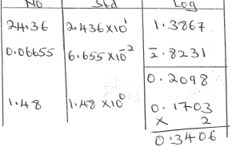 No Std Log
24.36 2.436×10¹ 1.3867
0.06655 6.655×10⁻² 2̄.8231
0.2098
1.48 1.48×10⁰ 0.1703
× 2
0.3406